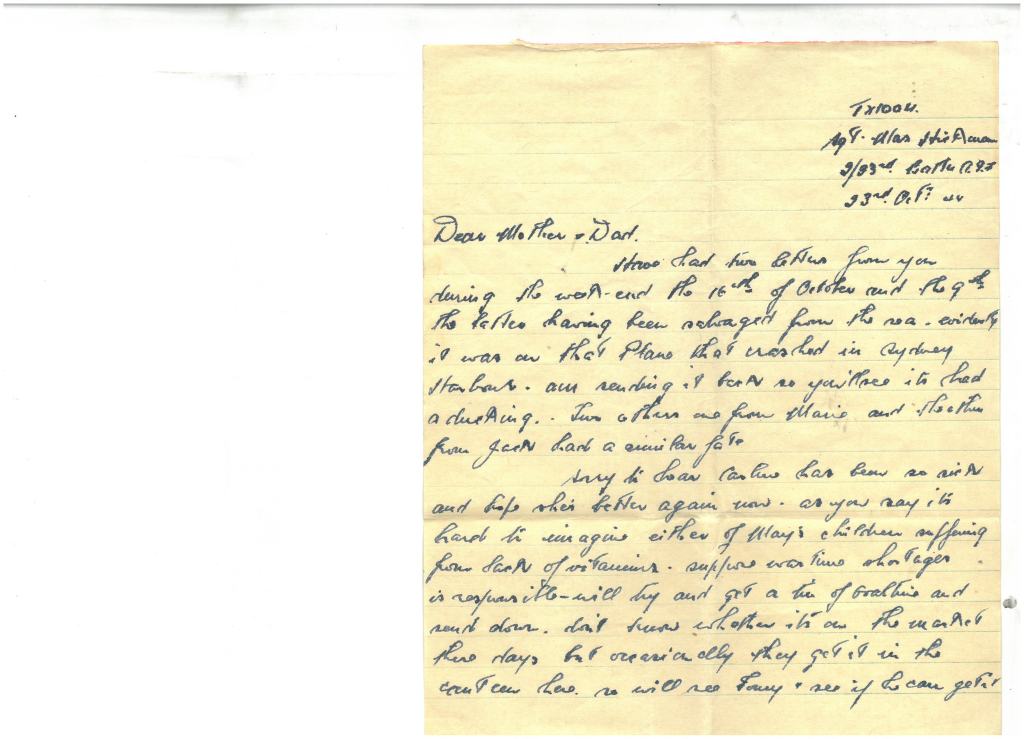 TX1004.
Sgt. Max Hickman
2/23rd Battn A.I.F
23rd Oct. 44
Dear Mother & Dad.
Have had two letters from you
during the week-end the 16th of October and the 9th
the latter having been salvaged from the sea. evidently
it was on that Plane that crashed in Sydney
Harbour. am sending it back so you'll see its had
a ducking.. Two others one from Marie and the other
from Jack had a similar fate
Sorry to hear has been so sick
and hope she's better again now. as you say its
hard to imagine either of May's children suffering
from lack of vitamins. suppose wartime shortages
is responsible - will try and get a tin of ovaltine and
send down. don't know whether its on the market
these days but occasionally they get it in the
canteen here. so will see & see if he can get it